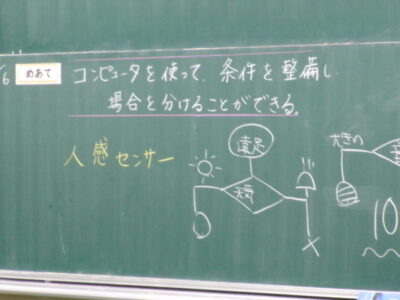 6 めあて コンピュータを使って、条件を整備し
場合を分けることができる。
人感センサー
遠足
天気
大きい
10